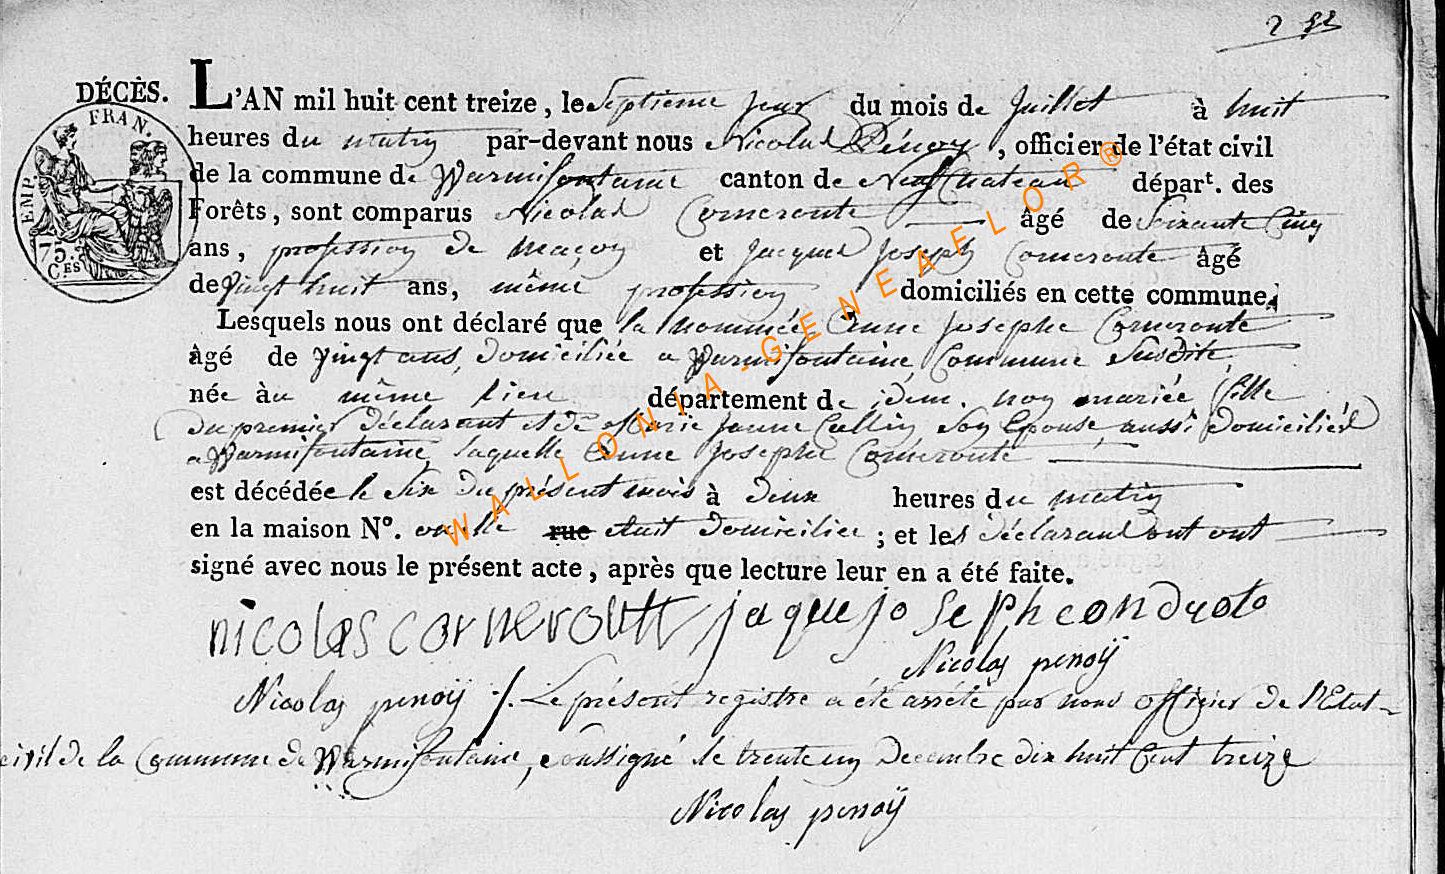 DÉCÈS.
EMP. FRAN.
75.
C.ES
L'AN mil huit cent treize, le Septieme jour du mois de Juillet à huit
heures du matin par-devant nous Nicolas Pénoy, officier de l'état civil
de la commune de Warmifontaine canton de Neufchateau dépar.t des
Forêts, sont comparus Nicolas Corneroute âgé de Soixante Cinq
ans, profession de maçon et Jacques Joseph Corneroute âgé
de Vingt huit ans, même profession domiciliés en cette commune,
Lesquels nous ont déclaré que la nommée Anne Josephe Corneroute
âgé de Vingt ans, domiciliée a Warmifontaine Commune Susdite
née àu même lieu département de idem. non mariée fille
du premier déclarant et de Marie Jeanne Collin Son Epouse aussi domiciliés
a Warmifontaine laquelle Anne Josephe Corneroute
est décédée le Six du présent mois à deux heures du matin
en la maison Nº. ou elle rue etait domiciliée ; et les déclarants ont ont
signé avec nous le présent acte, après que lecture leur en a été faite.
nicolas corneroutt jaque joseph
Nicolas penoÿ
Nicolas penoÿ ./. Le présent registre a été arrété par nous officier de l'Etat
civil de la Commune de Warmifontaine, soussigné le trente un Decembre dix huit Cent treize
Nicolas penoÿ
WALLONIA-GENEAELOR®